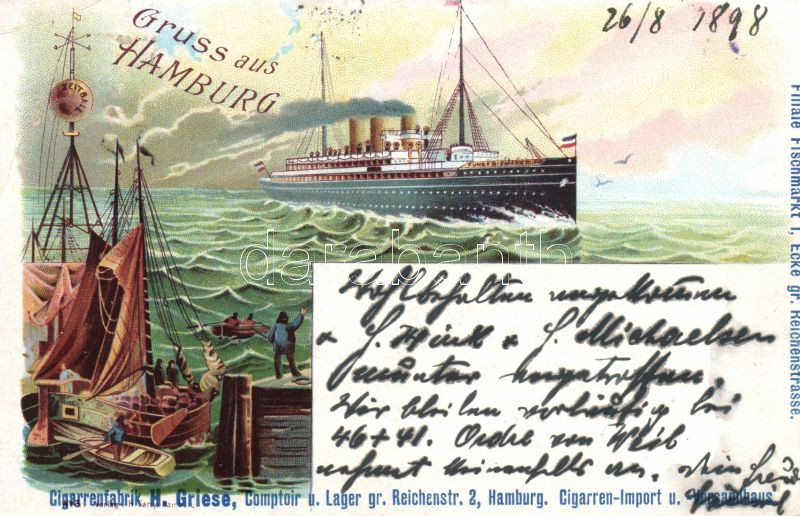 26/8 1898
Gruss aus
HAMBURG
ZEITBALL
FÜRST BISMARCK
darabanth
Wohlbehalten angekommen
& H. Wink & H. Michaelsen
munter angetroffen.
Wir bleiben vorläufig bei
46 + 41. Ordre von Weib
nehmt keinenfalls an.
Filiale Fischmarkt 1, Ecke gr. Reichenstrasse.
Cigarrenfabrik H. Griese, Comptoir u. Lager gr. Reichenstr. 2, Hamburg. Cigarren-Import u. Versandhaus